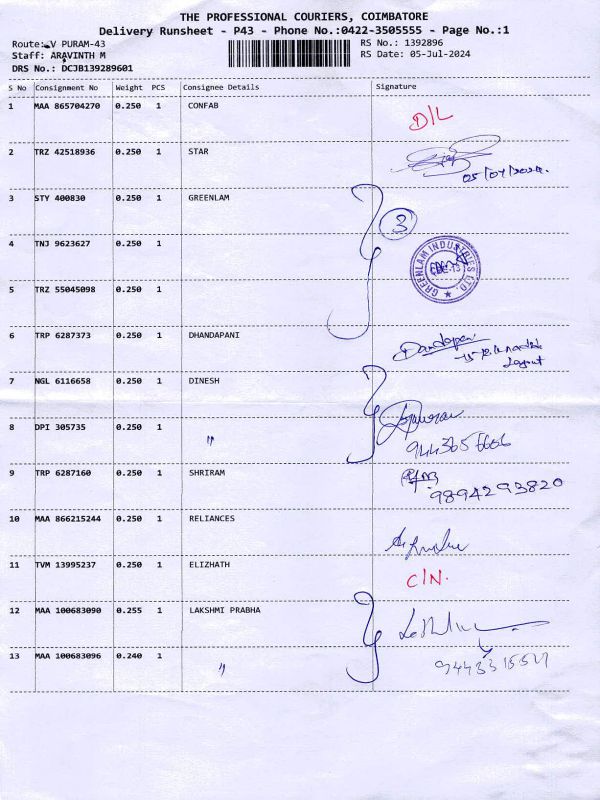 THE PROFESSIONAL COURIERS, COIMBATORE
Delivery Runsheet - P43 - Phone No.:0422-3505555 - Page No.:1
Route: V PURAM-43
RS No.: 1392896
Staff: ARAVINTH M
RS Date: 05-Jul-2024
DRS No.: DCJB139289601
S No Consignment No Weight PCS Consignee Details Signature
1 MAA 865704270 0.250 1 CONFAB D/L
2 TRZ 42518936 0.250 1 STAR
05/07/2024.
3 STY 400830 0.250 1 GREENLAM
3
4 TNJ 9623627 0.250 1
GREENLAM INDUSTRIES LTD.
5 TRZ 55045098 0.250 1
6 TRP 6287373 0.250 1 DHANDAPANI
Layout
7 NGL 6116658 0.250 1 DINESH
8 DPI 305735 0.250 1 "
9 TRP 6287160 0.250 1 SHRIRAM
9894293820
10 MAA 866215244 0.250 1 RELIANCES
11 TVM 13995237 0.250 1 ELIZHATH C/N.
12 MAA 100683090 0.255 1 LAKSHMI PRABHA
13 MAA 100683096 0.240 1 "